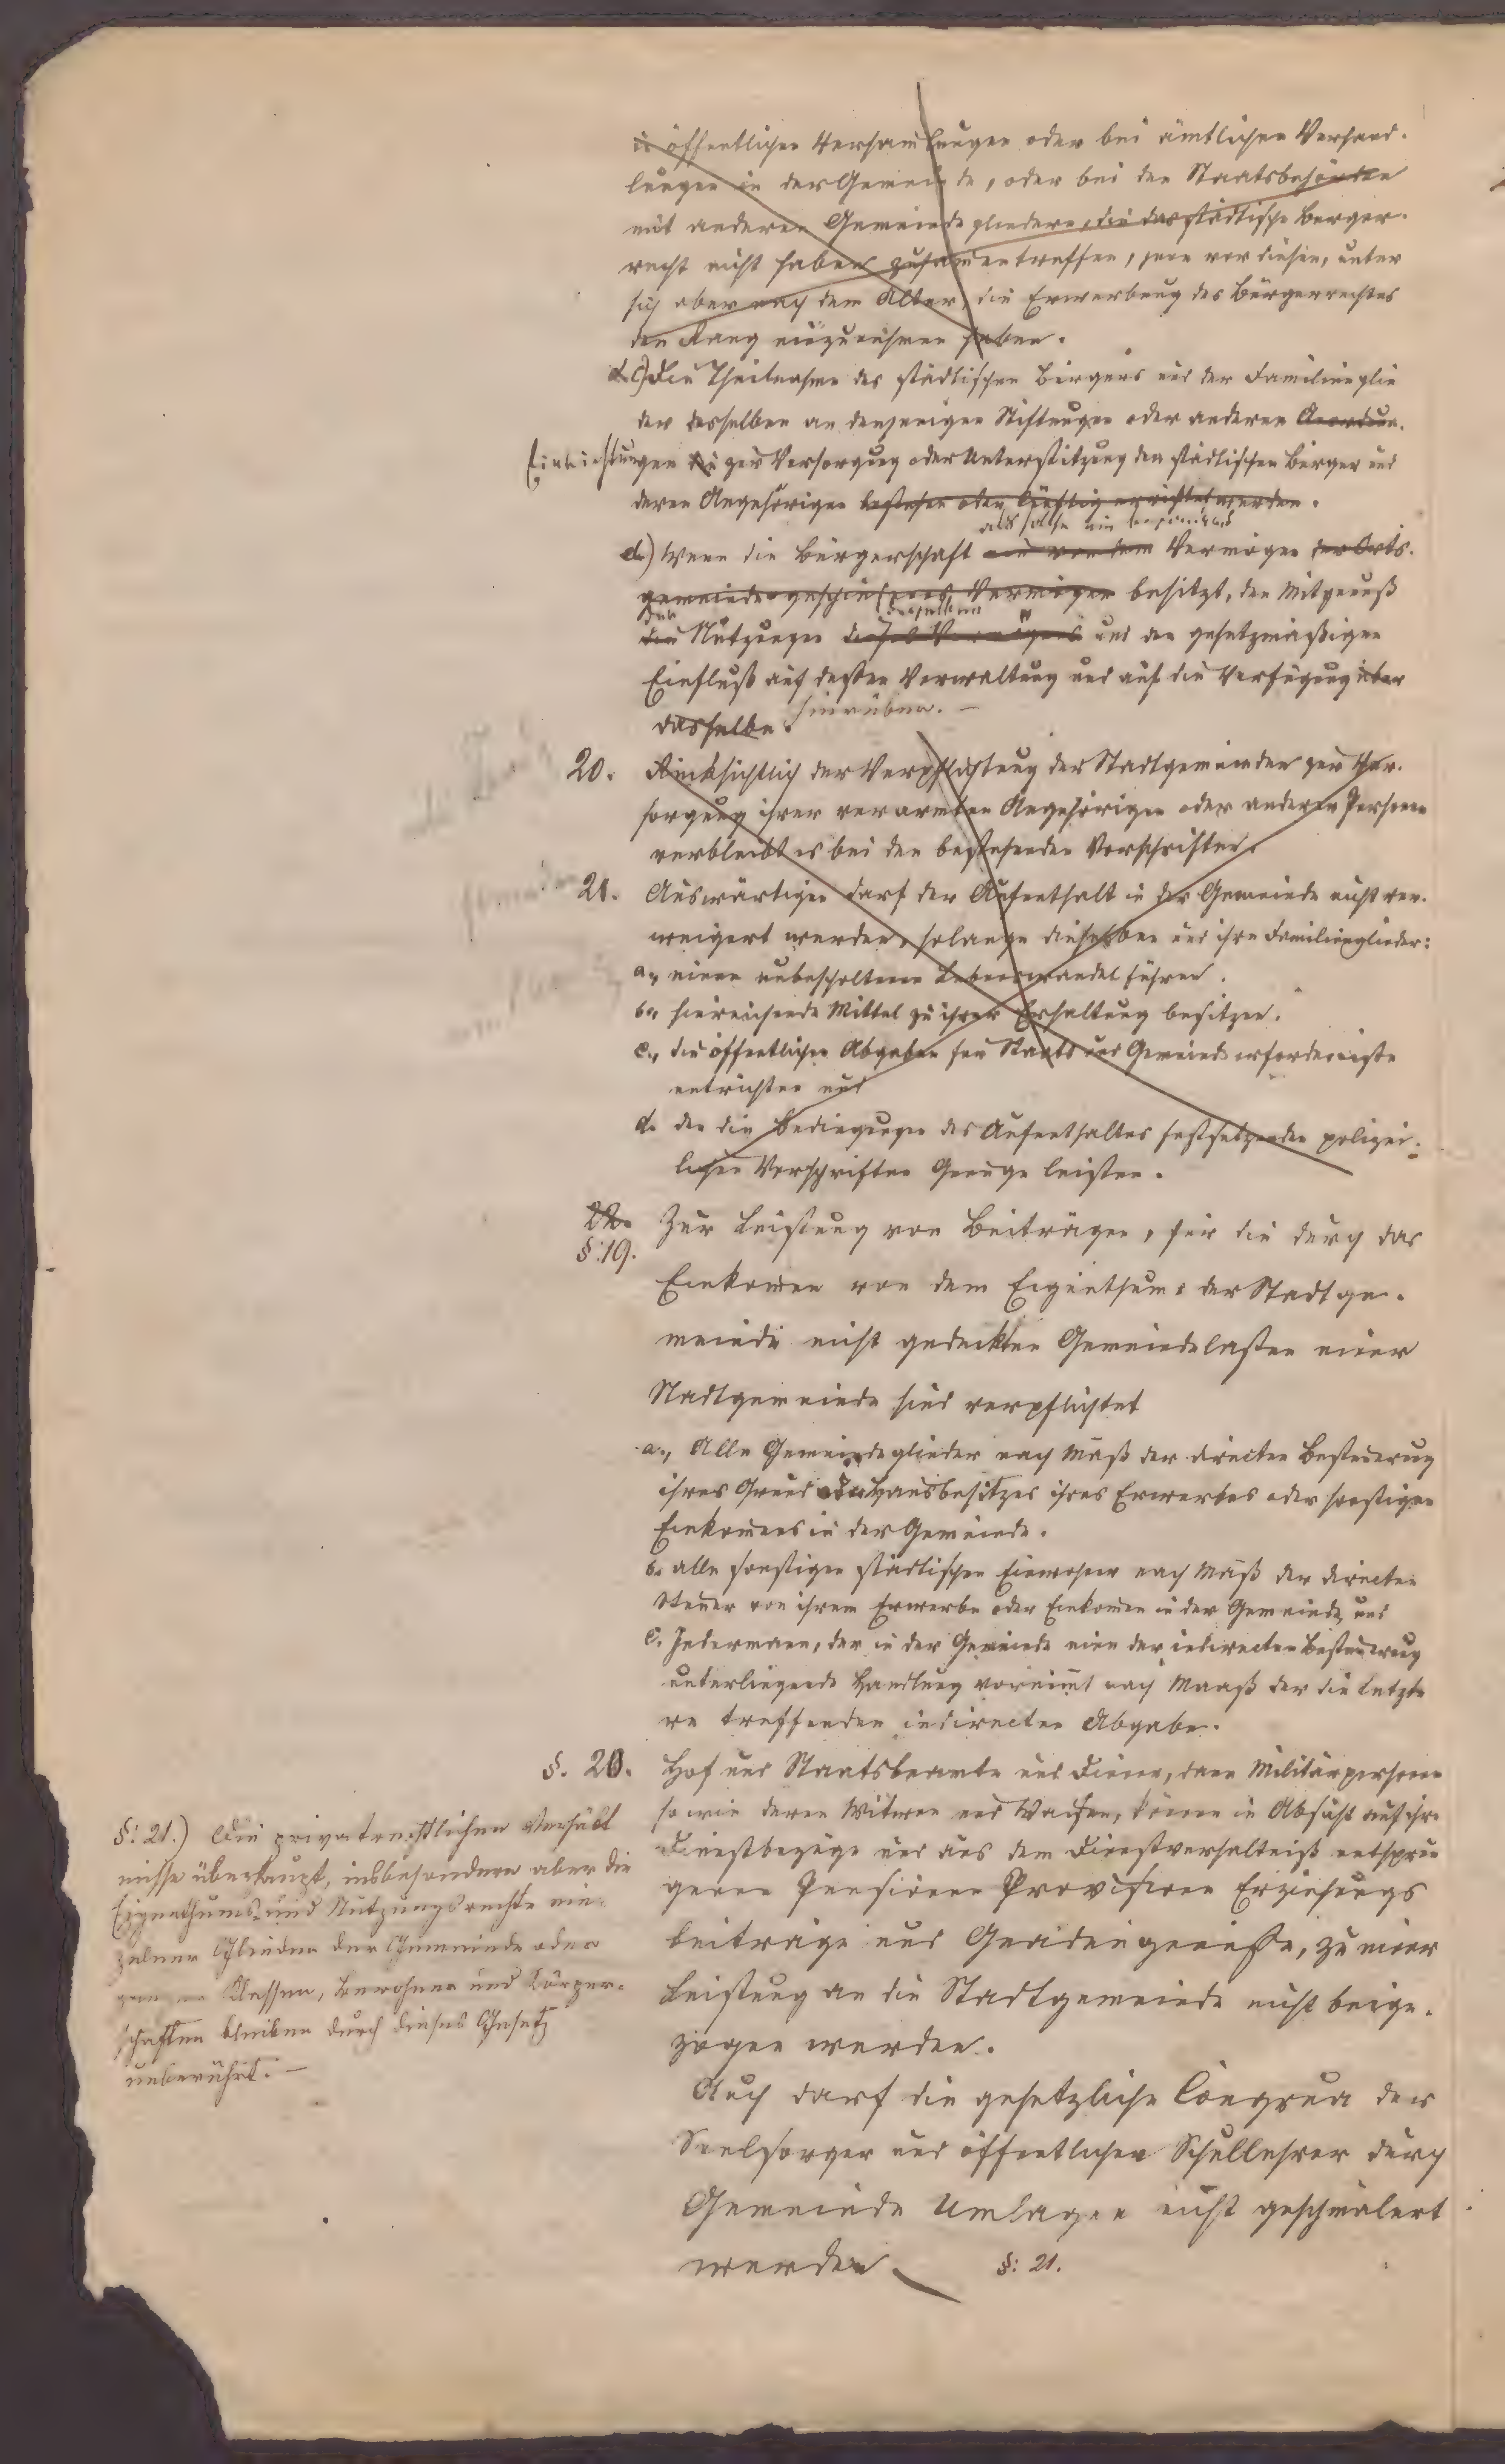 in öffentlichen Versamlungen oder bei ämtlichen Verhand-
lungen in der Gemeinde, oder bei den Staatsbehörden
mit anderen Gemeindegliedern, die das städtische Bürger-
recht nicht haben zusamentreffen, jene vor diesen, unter
sich aber nach dem Alter, die Erwerbung des Bürgerrechtes
den Rang einzunehmen haben.
d. c) Die Theilnahme des städtischen Bürgers und der Familienglie
der desselben an denjenigen Stiftungen oder anderen Anordnun-
Einrichtungen zur Versorgung oder Unterstützung der städtischen Bürger und
deren Angehörigen bestehen oder künftig errichtet werden.
als solche ein
d) Wenn die Bürgerschaft ein von dem Vermögen der Orts-
gemeinde geschiedenes Vermögen besitzt, den Mitgenuß
der desselben
die Nutzungen dieses Vermögens und den gesetzmäßigen
Einfluß auf dessen Verwaltung und auf die Verfügung über
dasselbe. hierüber. –
20. Rücksichtlich der Verpflichtung der Stadtgemeinden zur Ver-
sorgung ihrer verarmten Angehörigen oder anderen Personen
verbleibt es bei den bestehenden Vorschriften.
21. Auswärtigen darf der Aufenthalt in der Gemeinde nicht ver-
weigert werden, solange dieselben und ihre Familienglieder:
a., einen unbescholtenen Lebenswandel führen.
b., hinreichende Mittel zu ihrer Erhaltung besitzen.
c., die öffentlichen Abgaben für Staats und Gemeindeerfordernisse
entrichten und
d. den die Bedingungen des Aufenthaltes festsetzenden polizei-
lichen Vorschriften Genüge leisten.
22. Zur Leistung von Beiträgen, für die durch das
§: 19.
Einkomen von dem Eigenthume der Stadtge-
meinde nicht gedeckten Gemeindelasten einer
Stadtgemeinde sind verpflichtet
a., Alle Gemeindeglieder nach Maß der directen Besteuerung
ihres Grund oder Hausbesitzes ihres Erwerbes oder sonstigen
Einkomens in der Gemeinde.
b. alle sonstigen städtischen Einwohner nach Maß der directen
Steuer von ihrem Erwerbe oder Einkomen in der Gemeinde und
c. Jedermann, der in der Gemeinde eine der indirecten Besteuerung
unterliegende Handlung vornimmt nach Maaß der die letzte
re treffenden indirecten Abgabe.
§. 20. Hof und Staatsbeamte und Diener, dann Militärpersonen
so wie deren Witwen und Waisen, können in Absicht auf ihre
Dienstbezüge und aus dem Dienstverhältniß entsprun
genen Pensionen Provisionen Erziehungs
beiträge und Gnadengenüsse, zu einer
Leistung an die Stadtgemeinde nicht beige-
zogen werden.
Auch darf die gesetzliche Congrua der
Seelsorger und öffentlichen Schullehrer durch
Gemeinde Umlagen nicht geschmälert
werden. §: 21.
§: 21.) Die privatrechtlichen Verhält
nisse überhaupt, insbesondere aber die
Eigenthums- und Nutzungsrechte ein-
zelner Glieder der Gemeinde oder
Klassen, Bewohner und Körper-
schaften bleiben durch dieses Gesetz
unberührt. –